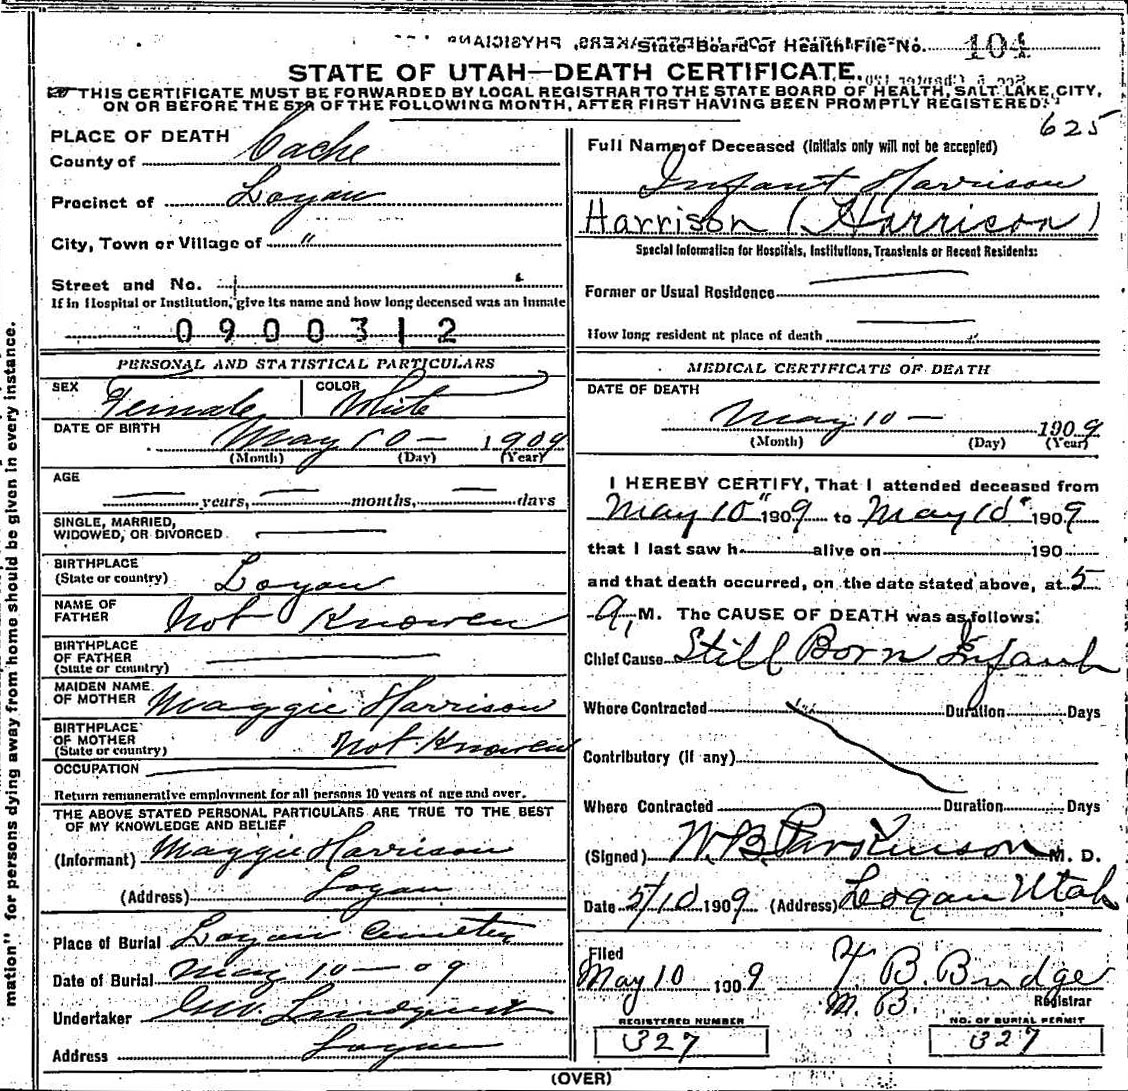 State Board of Health File No. 104
STATE OF UTAH—DEATH CERTIFICATE.
THIS CERTIFICATE MUST BE FORWARDED BY LOCAL REGISTRAR TO THE STATE BOARD OF HEALTH, SALT LAKE CITY,
ON OR BEFORE THE 5TH OF THE FOLLOWING MONTH, AFTER FIRST HAVING BEEN PROMPTLY REGISTERED.
625
PLACE OF DEATH
County of Cache
Precinct of Logan
City, Town or Village of "
Street and No.
If in Hospital or Institution, give its name and how long deceased was an inmate
0900312
PERSONAL AND STATISTICAL PARTICULARS
SEX Female COLOR White
DATE OF BIRTH May 10 — 1909
(Month) (Day) (Year)
AGE
— years, — months, — days
SINGLE, MARRIED,
WIDOWED, OR DIVORCED —
BIRTHPLACE
(State or country) Logan
NAME OF
FATHER Not Knowen
BIRTHPLACE
OF FATHER —
(State or country)
MAIDEN NAME
OF MOTHER Maggie Harrison
BIRTHPLACE
OF MOTHER
(State or country) Not Knowen
OCCUPATION —
Return remunerative employment for all persons 10 years of age and over.
THE ABOVE STATED PERSONAL PARTICULARS ARE TRUE TO THE BEST
OF MY KNOWLEDGE AND BELIEF
(Informant) Maggie Harrison
(Address) Logan
Place of Burial Logan Cemetery
Date of Burial May 10 — 09
Undertaker Geo. Lindquist
Address Logan
Full Name of Deceased (Initials only will not be accepted)
Infant Harrison
Harrison (Harrison)
Special Information for Hospitals, Institutions, Transients or Recent Residents:
Former or Usual Residence —
How long resident at place of death —
MEDICAL CERTIFICATE OF DEATH
DATE OF DEATH
May 10 — 1909
(Month) (Day) (Year)
I HEREBY CERTIFY, That I attended deceased from
May 10" 1909 to May 10" 1909
that I last saw h alive on 190
and that death occurred, on the date stated above, at 5
A, M. The CAUSE OF DEATH was as follows:
Chief Cause Still Born Infant
Where Contracted Duration Days
Contributory (if any)
Where Contracted Duration Days
(Signed) W. B. Parkinson M. D.
Date 5/10 1909 (Address) Logan Utah
Filed
May 10 1909 B. Budge
M. B. Registrar
REGISTERED NUMBER NO. OF BURIAL PERMIT
327 327
(OVER)
mation" for persons dying away from home should be given in every instance.